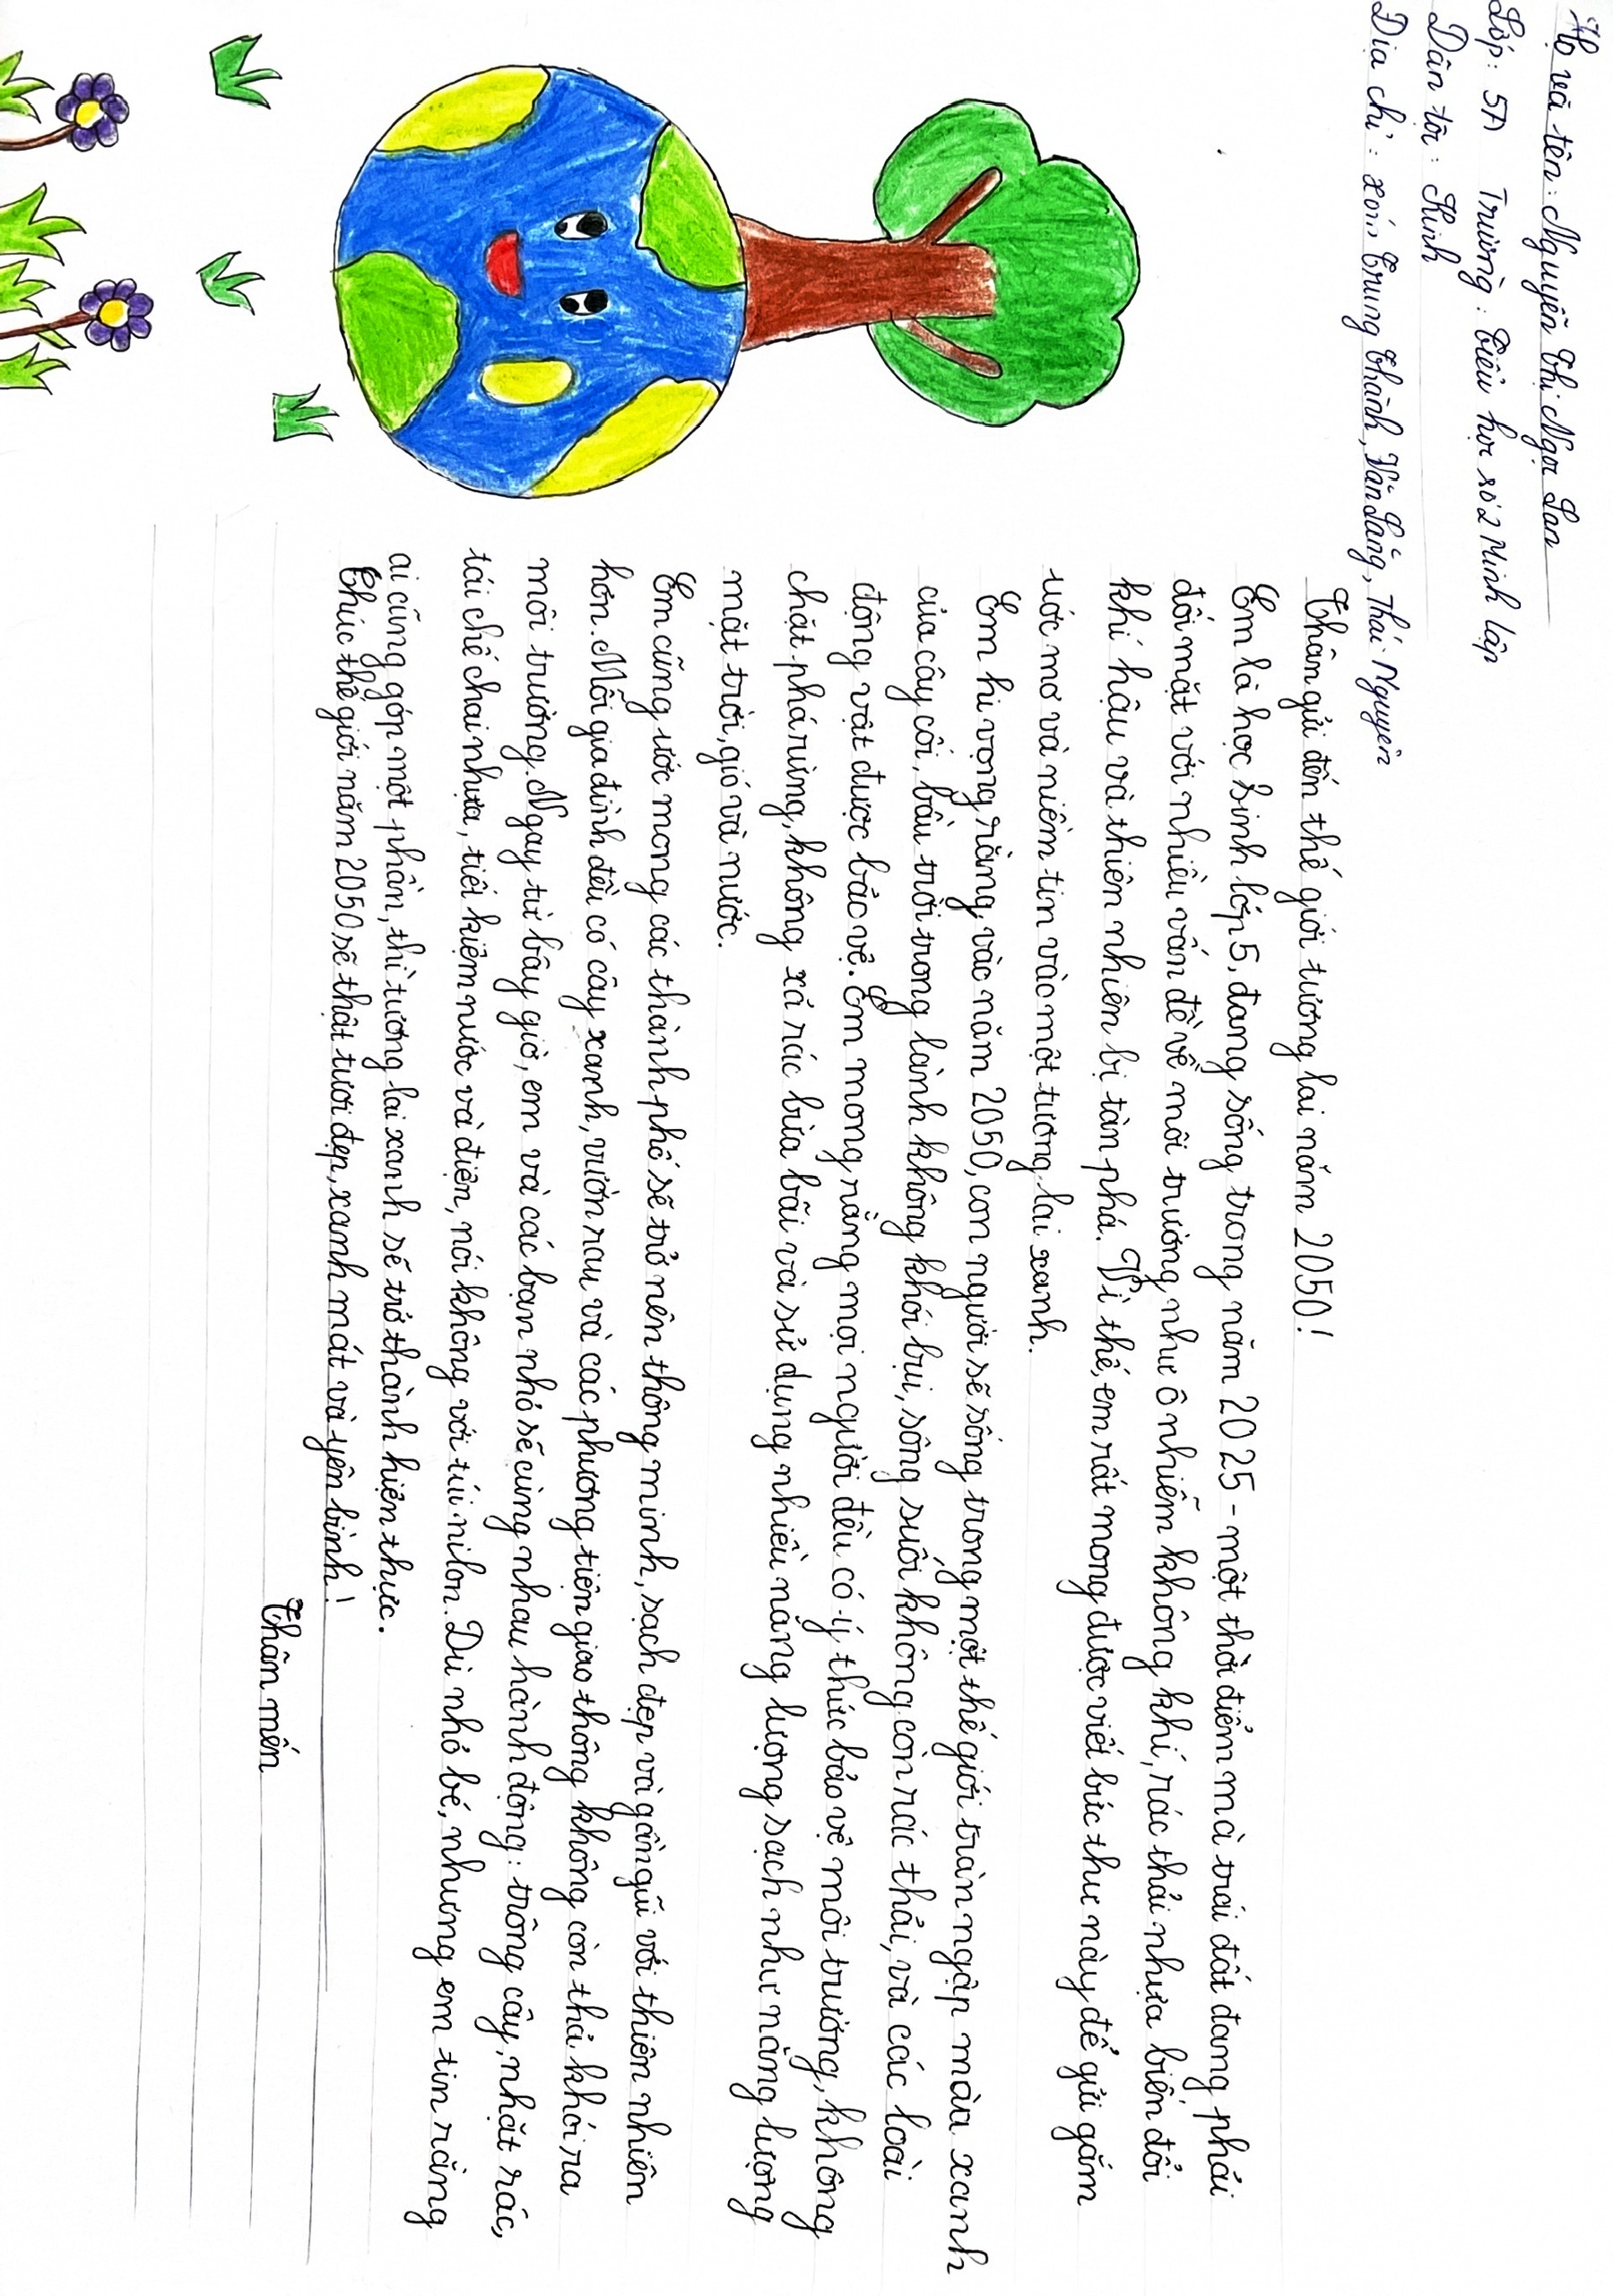 Họ và tên: Nguyễn Thị Ngọc Lan
Lớp: 5A Trường: Tiểu học số 2 Minh Lập
Dân tộc: Kinh
Địa chỉ: xóm Trung Thành, Văn Lăng, Thái Nguyên
Thân gửi đến thế giới tương lai năm 2050!
Em là học sinh lớp 5, đang sống trong năm 2025 - một thời điểm mà trái đất đang phải
đối mặt với nhiều vấn đề về môi trường như ô nhiễm không khí, rác thải nhựa biến đổi
khí hậu và thiên nhiên bị tàn phá. Vì thế, em rất mong được viết bức thư này để gửi gắm
ước mơ và niềm tin vào một tương lai xanh.
Em hi vọng rằng, vào năm 2050, con người sẽ sống trong một thế giới tràn ngập màu xanh
của cây cối, bầu trời trong lành không khói bụi, sông suối không còn rác thải, và các loài
động vật được bảo vệ. Em mong rằng mọi người đều có ý thức bảo vệ môi trường, không
chặt phá rừng, không xả rác bừa bãi và sử dụng nhiều năng lượng sạch như năng lượng
mặt trời, gió và nước.
Em cũng ước mong các thành phố sẽ trở nên thông minh, sạch đẹp và gần gũi với thiên nhiên
hơn. Mỗi gia đình đều có cây xanh, vườn rau và các phương tiện giao thông không còn thả khói ra
môi trường. Ngay từ bây giờ, em và các bạn nhỏ sẽ cùng nhau hành động: trồng cây, nhặt rác,
tái chế chai nhựa, tiết kiệm nước và điện, nói không với túi nilon. Dù nhỏ bé, nhưng em tin rằng
ai cũng góp một phần, thì tương lai xanh sẽ trở thành hiện thực.
Chúc thế giới năm 2050, sẽ thật tươi đẹp, xanh mát và yên bình!
Thân mến